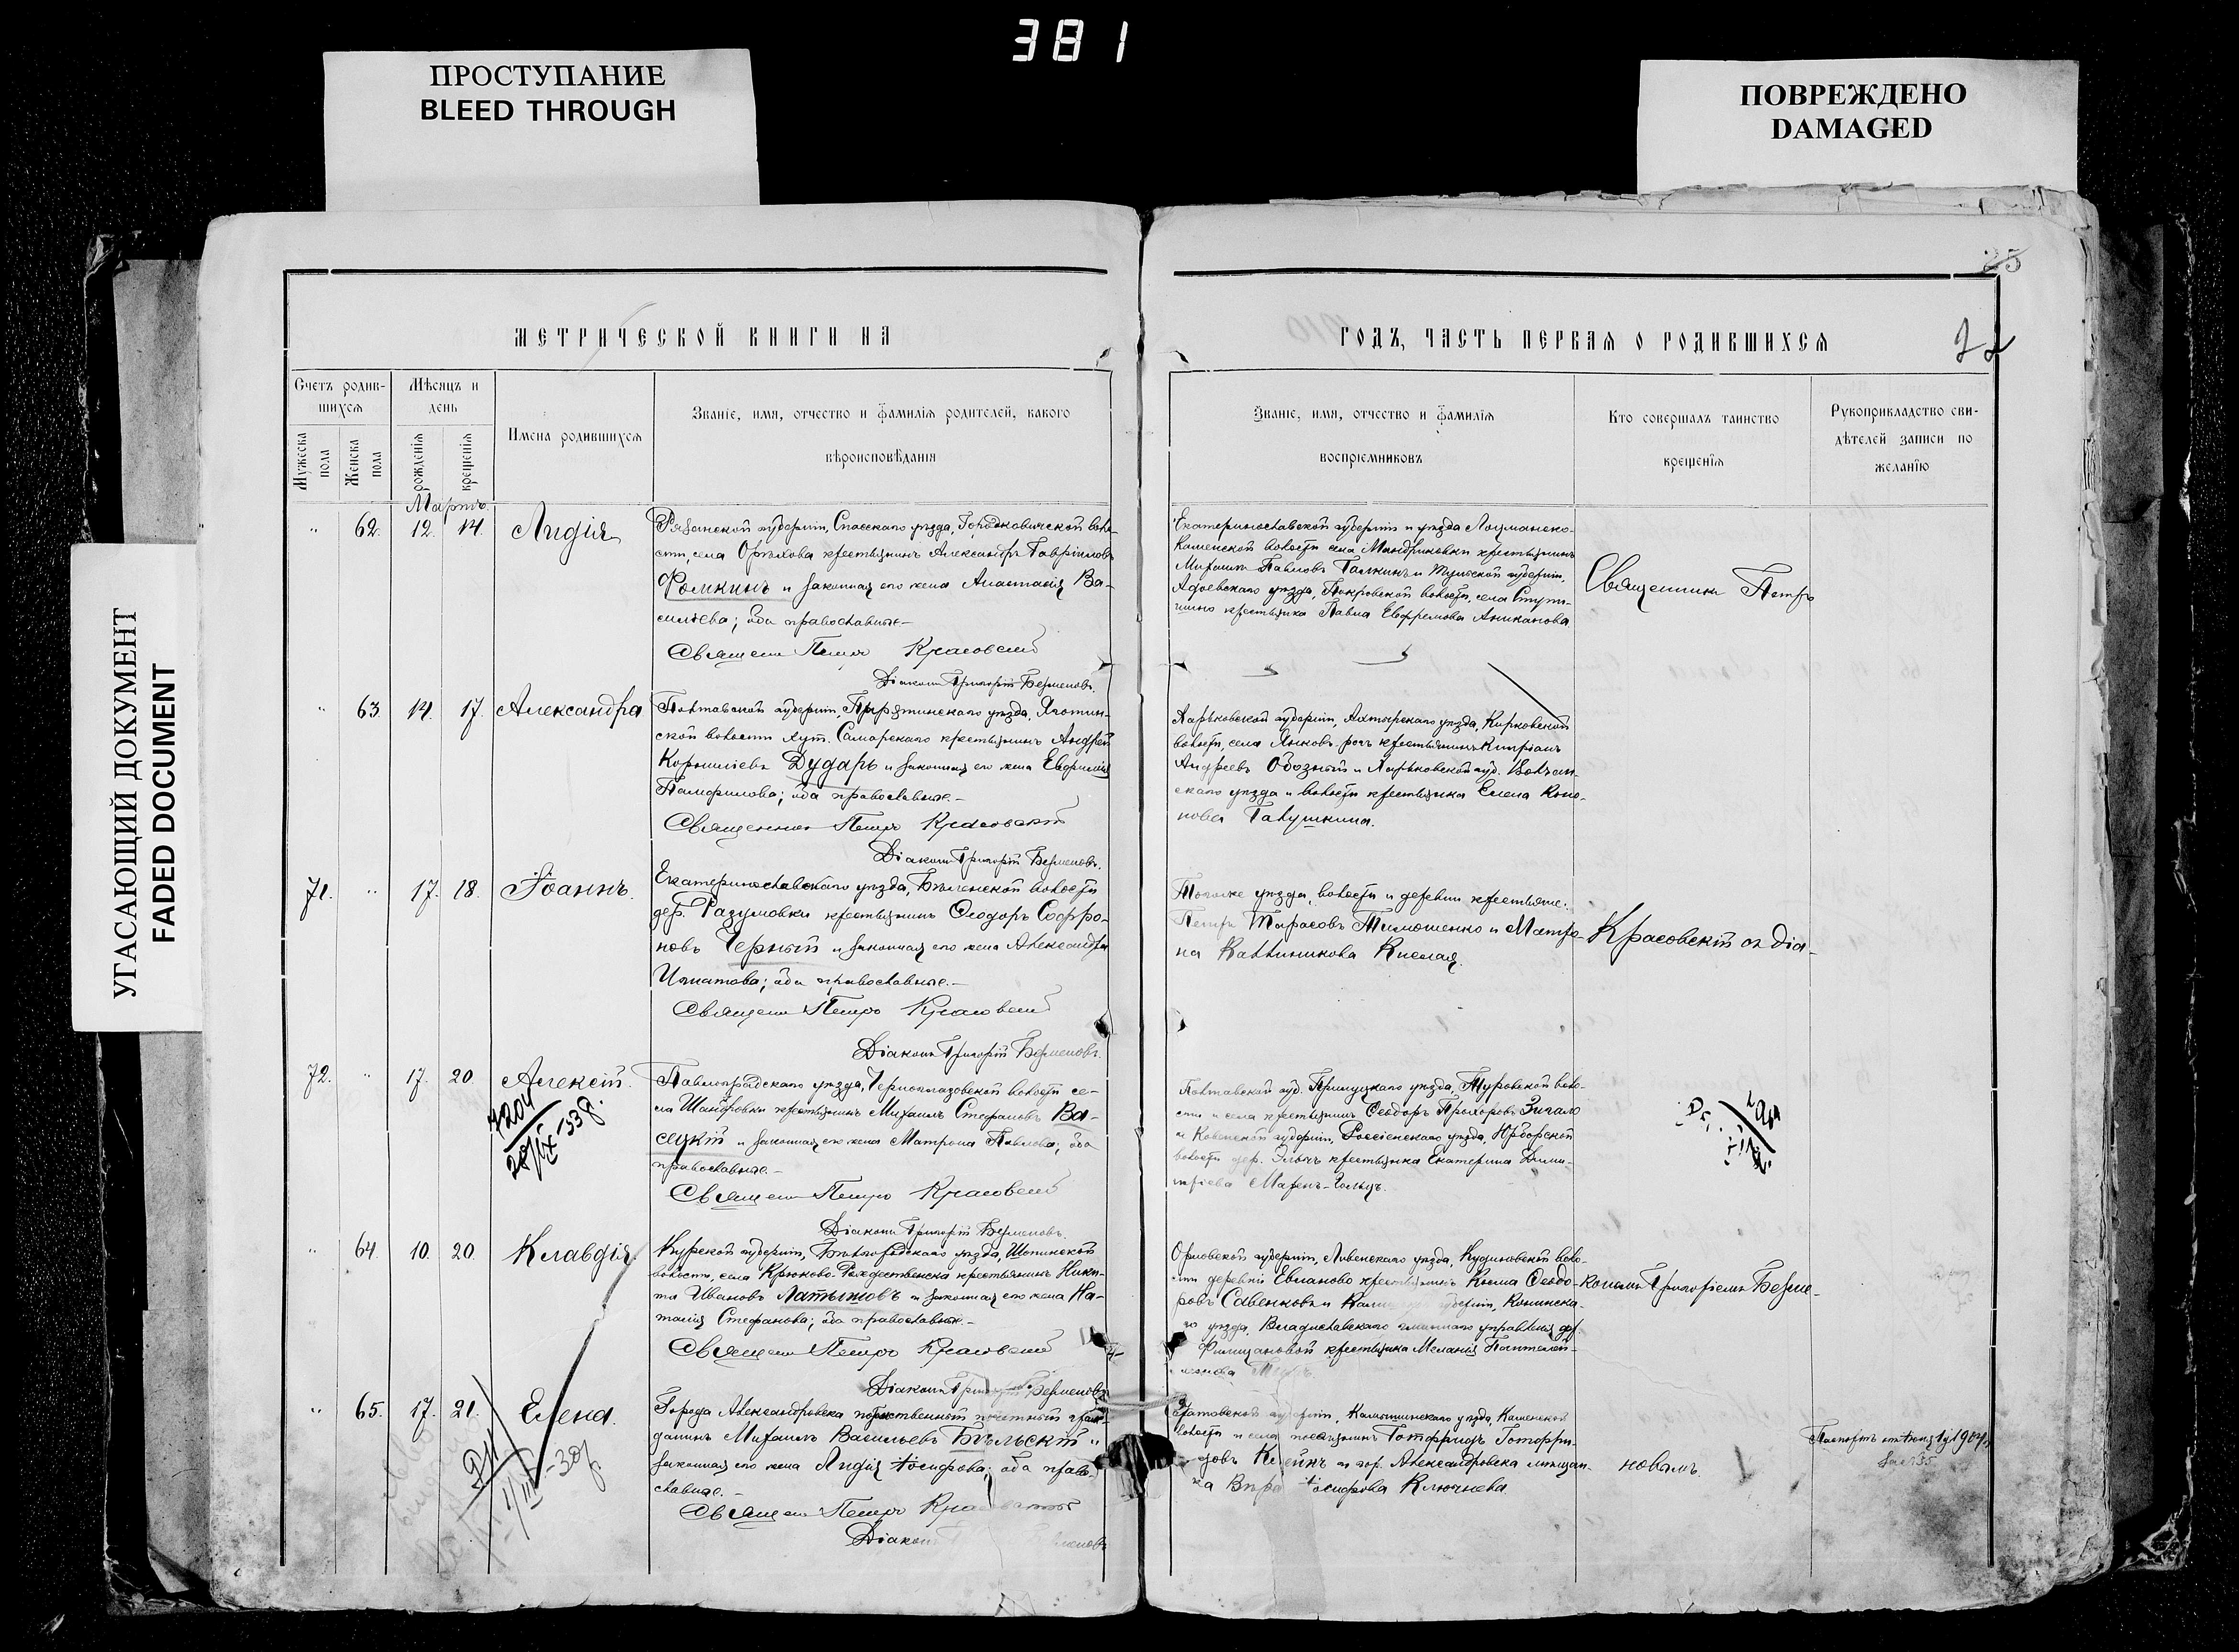 381
ПРОСТУПАНИЕ
BLEED THROUGH
ПОВРЕЖДЕНО
DAMAGED
УГАСАЮЩИЙ ДОКУМЕНТ
FADED DOCUMENT
25
22
МЕТРИЧЕСКОЙ КНИГИ НА
ГОДЪ, ЧАСТЬ ПЕРВАЯ О РОДИВШИХСЯ
Счетъ родив-
шихся
Мужеска
пола
Женска
пола
Мѣсяцъ и
день
рожденія
крещенія
Имена родившихся
Званіе, имя, отчество и фамилія родителей, какого
вѣроисповѣданія
Званіе, имя, отчество и фамилія
воспріемниковъ
Кто совершалъ таинство
крещенія
Рукоприкладство сви-
дѣтелей записи по
желанію
Мартъ
" 62. 12. 14. Лидія
Рязанской губерніи, Спасскаго уѣзда, Городковической воло-
сти, села Орѣхова крестьянинъ Александръ Гавріиловъ
Фомкинъ и законная его жена Анастасія Ва-
сильева; оба православные.-
Священ Петръ Красовскій
Діаконъ Григорій Безменовъ.
Екатеринославской губерніи и уѣзда Лоцманско-
Каменской волости села Мандриковки крестьянинъ
Михаилъ Павловъ Галкинъ и Тульской губерніи,
уѣзда, Покровской волости, села
крестьянка Павла Евфремова Аниканова
Священникъ Петръ
" 63. 14. 17. Александра
Полтавской губерніи, Пирятинскаго уѣзда, Яготин-
ской волости хут. Самарскаго крестьянинъ Андрей
Корниліевъ Дударь и законная его жена Евфимія
Памфилова; оба православные.-
Священникъ Петръ Красовскій
Діаконъ Григорій Безменовъ.
Харьковской губерніи, Ахтырскаго уѣзда,
волости, села Янковъ-рогъ крестьянинъ Кипріанъ
Андреевъ Обозный и Харьковской губ. Волчан-
скаго уѣзда и волости крестьянка Елена Коно-
нова Галушкина.
71. " 17. 18. Іоаннъ.
Екатеринославскаго уѣзда, Бѣленской волости
дер. Разумовки крестьянинъ Ѳеодоръ Софро-
новъ Черный и законная его жена Александра
Игнатова; оба православные.-
Священ Петръ Красовскій
Діаконъ Григорій Безменовъ.
Того же уѣзда, волости и деревни крестьяне:
Петръ Тарасовъ Тимошенко и Матро-
на Каллиникова Кислая.
Красовскій съ діа-
72. " 17. 20. Алексій.
28/IX-33 г.
Павлоградскаго уѣзда, Черноглазовской волости се-
ла Шандровки крестьянинъ Михаилъ Стефановъ Ва-
сецкій и законная его жена Матрона Павлова; оба
православные.-
Священ Петръ Красовскій
Діаконъ Григорій Безменовъ.
Полтавской губ. Прилуцкаго уѣзда, Туровской воло-
сти и села крестьянинъ Ѳеодоръ Прохоровъ
и Ковенской губерніи, Россіенскаго уѣзда, Юрборской
волости дер. крестьянка Екатерина Дими-
тріева
" 64. 10. 20. Клавдія.
Курской губерніи, Бѣлгородскаго уѣзда, Шопинской
волости, села Крюково-Рождественска крестьянинъ Ники-
та Ивановъ Латышовъ и законная его жена На-
талія Стефанова; оба православные.-
Священ Петръ Красовскій
Діаконъ Григорій Безменовъ
Орловской губерніи, Ливенскаго уѣзда, Кудиновской воло-
сти деревни Евланово крестьянинъ Косма Ѳеодо-
ровъ Савенковъ и губерніи, Конинска-
го уѣзда, Владиславскаго гминнаго управленія дер.
крестьянка Меланія Пантелей-
кономъ Григоріемъ Безме-
" 65. 17. 21. Елена.
Города Александровска потомственный почетный граж-
данинъ Михаилъ Васильевъ Бѣльскій и
законная его жена Лидія Іосифова; оба право-
славные.-
Священ Петръ Красовскій
Діаконъ
губерніи, Камышинскаго уѣзда, Каменской
волости и села поселянинъ Готфридъ Готфри-
довъ Клейнъ и гор. Александровска мѣщан-
ка Вѣра Іосифова Ключнева
новымъ.